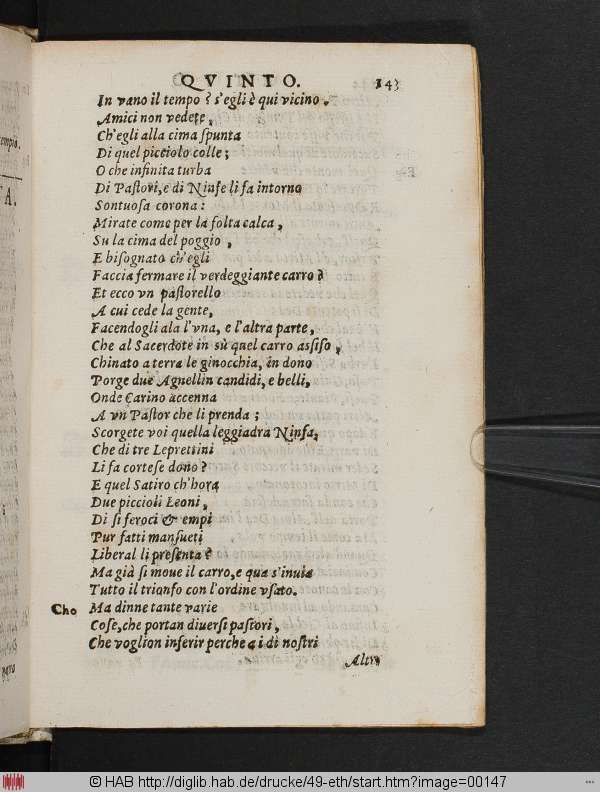 QVINTO. 143
In vano il tempo? s'egli è qui vicino.
Amici non vedete,
Ch'egli alla cima spunta
Di quel picciolo colle;
O che infinita turba
Di Pastori, e di Ninfe li fa intorno
Sontuosa corona:
Mirate come per la folta calca,
Su la cima del poggio,
E bisognato ch'egli
Faccia fermare il verdeggiante carro?
Et ecco vn pastorello
A cui cede la gente,
Facendogli ala l'vna, e l'altra parte,
Che al Sacerdote in sù quel carro assiso,
Chinato a terra le ginocchia, in dono
Porge due Agnellin candidi, e belli,
Onde Carino accenna
A vn Pastor che li prenda;
Scorgete voi quella leggiadra Ninfa,
Che di tre Leprettini
Li fa cortese dono?
E quel Satiro ch'hora
Due piccioli Leoni,
Di sì feroci & empi
Pur fatti mansueti
Liberal li presenta?
Ma già si moue il carro, e qua s'inuia
Tutto il trionfo con l'ordine vsato.
Cho Ma dinne tante varie
Cose, che portan diuersi pastori,
Che voglion inferir perche a i dì nostri
Altro
© HAB http://diglib.hab.de/drucke/49-eth/start.htm?image=00147